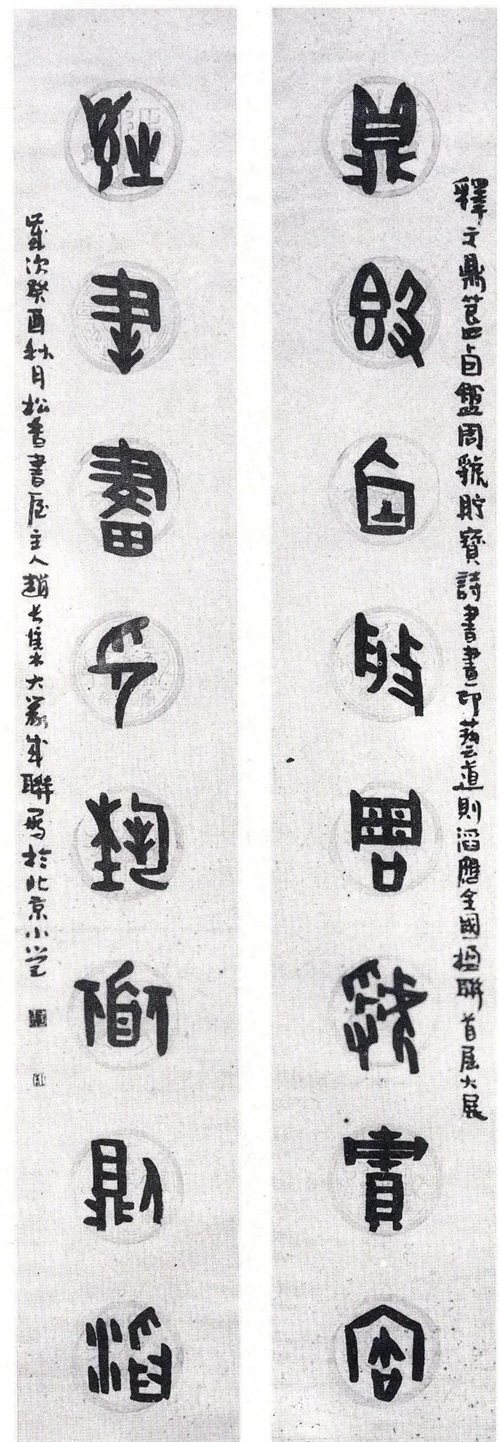 釋文鼎簋卣盤周虢貯寶詩書畫印藝道則滔應全國楹聯首屆大展
鼎簋卣盤周虢貯寶
詩書畫印藝道則滔
歲次癸酉秋月松香書屋主人趙長集大篆成聯寫於北京小堂